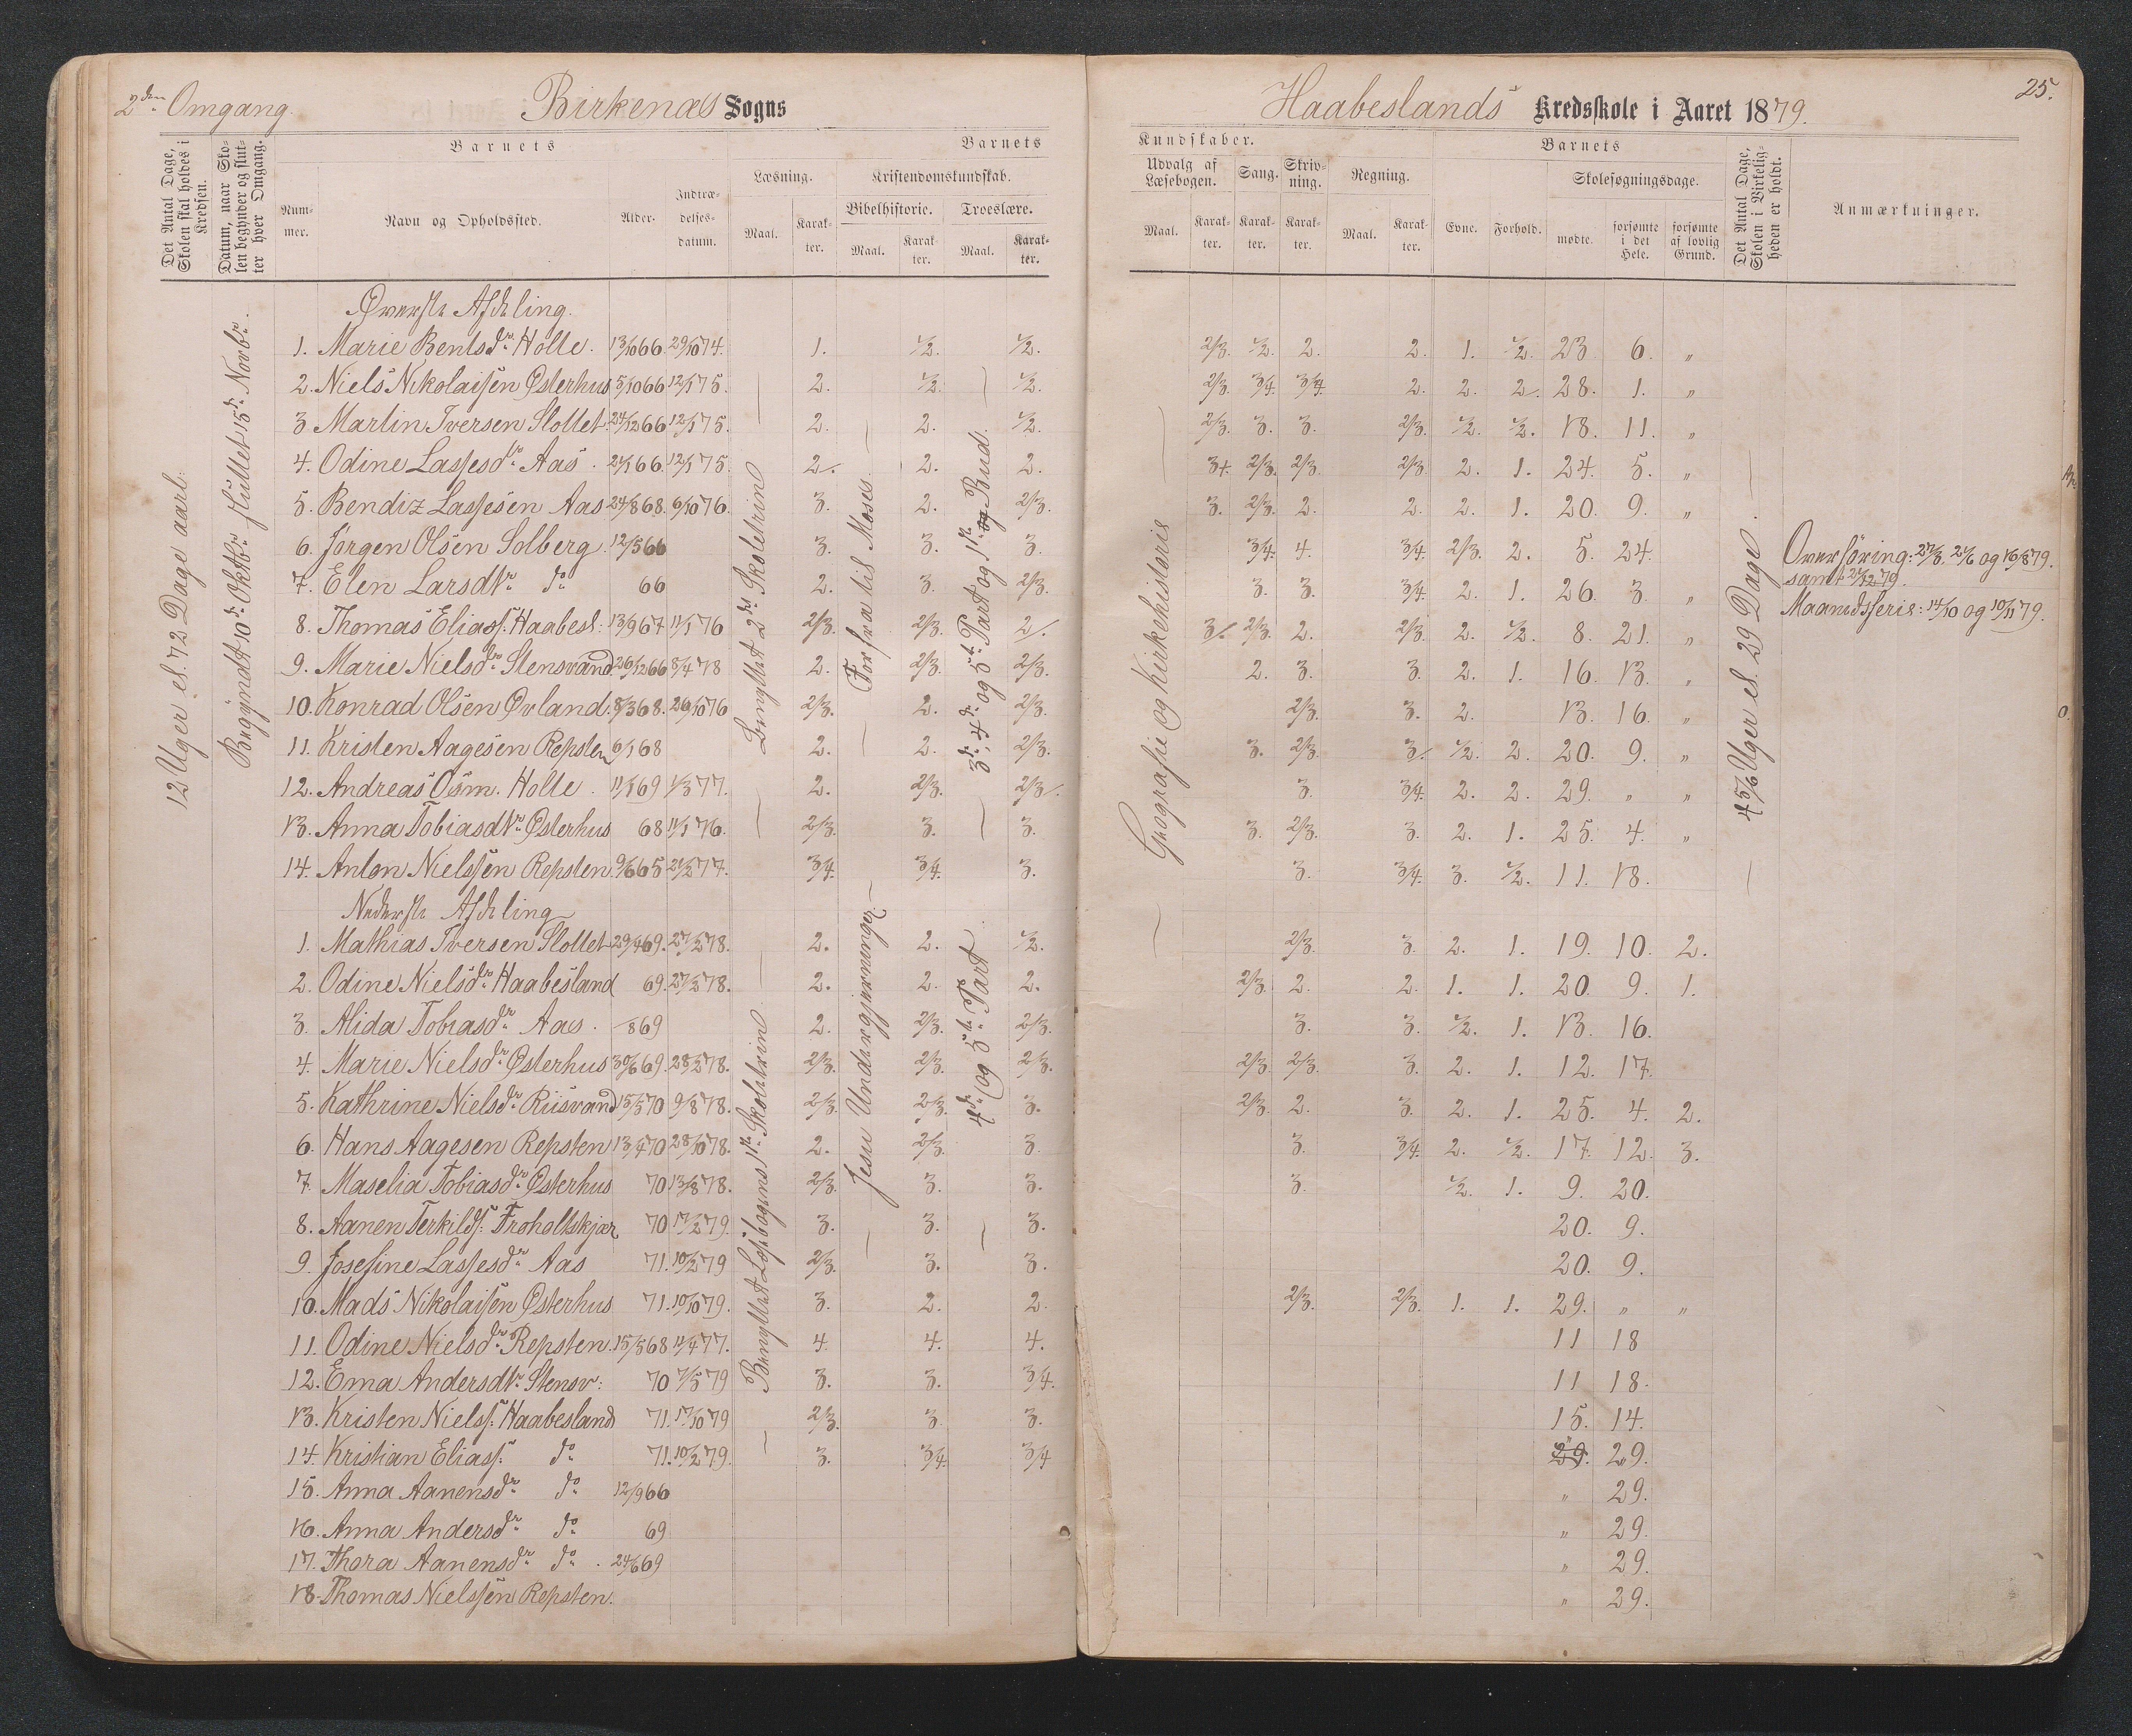 2den Omgang. Birkenæs Sogns
Haabeslands Kredsskole i Aaret 1879. 25.
Det Antal Dage, Skolen skal holdes i Kredsen.
Datum, naar Skolen begynder og slutter hver Omgang.
Barnets
Nummer.
Navn og Opholdssted.
Alder.
Indtrædelsesdatum.
Barnets
Læsning.
Maal.
Karakter.
Kristendomskundskab.
Bibelhistorie.
Maal.
Karakter.
Troeslære.
Maal.
Karakter.
Kundskaber.
Udvalg af Læsebogen.
Maal.
Karakter.
Sang.
Karakter.
Skrivning.
Karakter.
Regning.
Maal.
Karakter.
Barnets
Evne.
Forhold.
Skolesøgningsdage.
mødte.
forsømte i det Hele.
forsømte af lovlig Grund.
Det Antal Dage, Skolen i Virkeligheden er holdt.
Anmærkninger.
12 Uger el. 72 Dage aarl:
Begyndt 10de Oktbr. sluttet 15de Novbr.
Benyttet 2det Skoletrin
Forfra til Moses
3die, 4de og 5te Part og 1ste og Bud.
Geografie og Kirkehistorie
4 5/6 Uger el. 29 Dage.
Øverste Afdeling.
1. Marie Bentsdr. Holte. 13/10 66. 29/10 74. 1. 1/2. 1/2. 2/3. 1/2. 2. 2. 1. 1/2. 23. 6. "
2. Niels Nikolaisen Østerhus 5/10 66 12/1 75. 2. 1/2. 1/2. 2/3. 3/4. 3/4. 2. 2. 2. 28. 1. "
3 Martin Iversen Slottet. 24/12 66 12/1 75. 2. 2. 1/2. 2/3. 3. 3. 2/3. 1/2. 1/2. 18. 11. "
4. Odine Lassesdtr. Aas. 2/1 66. 12/1 75. 2. 2. 2. 3+. 2/3. 2/3. 2/3. 2. 1. 24. 5. "
5. Bendiz Lassesen Aas 24/8 68. 6/10 76. 3. 2. 2/3. 3. 2/3. 2. 2. 2. 1. 20. 9. "
6. Jørgen Olsen Solberg. 12/5 66 3. 3. 3. 3/4. 4. 3/4. 2/3. 2. 5. 24.
7. Elen Larsdtr. do 66 2. 3. 2/3. 3. 3. 3/4. 2. 1. 26. 3. "
8. Thomas Eliass. Haabesl: 13/9 67 11/1 76 2/3. 2/3. 2. 3. 2/3. 2. 2/3. 2. 1/2. 8. 21. "
9. Marie Nielsdr. Stensvand 26/12 66 8/4 78 2. 2/3. 2/3. 2. 3. 3. 2. 1. 16. 13. "
10. Konrad Olsen Øvland. 8/3 68. 26/10 76 2/3. 2. 2/3. 2/3. 3. 2. 13. 16. "
11. Kristen Aagesen Repsten 6/1 68 2. 2. 2/3. 3. 2/3. 3. 1/2. 2. 20. 9. "
12. Andreas Osm. Holte. 11/1 69 1/3 77. 2. 2/3. 2/3. 3. 3/4. 2. 2. 29. " "
13. Anna Tobiasdtr. Østerhus 68 11/1 76. 2/3. 3. 3. 3. 2/3. 3. 2. 1. 25. 4. "
14. Anton Nielssen Repsten. 9/6 65 21/2 77. 3/4. 3/4. 3. 3. 3/4. 3. 1/2. 11. 18.
Overføring: 27/3. 21/6 og 16/8 79.
samt 21/12 79.
Maanedsferie: 14/10 og 10/11 79.
Benyttet Læsebogens 1ste Skoletrin
Jesu Undergjerninger.
4de og 5te Part
Nederste Afdeling
1. Mathias Iversen Slottet 29/4 69. 27/2 78. 2. 2. 1/2. 2/3. 3. 2. 1. 19. 10. 2.
2. Odine Nielsdr. Haabesland 69. 27/2 78. 2. 2. 2. 2/3. 2. 2. 1. 1. 20. 9. 1.
3. Alida Tobiasdr. Aas. /8 69 2. 2/3. 2/3. 3. 3. 1/2. 1. 13. 16.
4. Marie Nielsdr. Østerhus 30/6 69. 28/2 78. 2/3. 2/3. 2/3. 2/3. 2/3. 3. 2. 1. 12. 17.
5. Kathrine Nielsdr. Riisvand 15/3 70 9/8 78. 2/3. 2/3. 3. 2/3. 2. 3. 2. 1. 25. 4. 2.
6. Hans Aagesen Repsten 13/4 70 28/10 78. 2. 2/3. 3. 3. 3/4. 2. 1/2. 17. 12. 3.
7. Maselia Tobiasdr. Østerhus 70 13/8 78. 2/3. 3. 3. 3. 1/2. 1. 9. 20.
8. Aanen Terkilds: Froholtskjær 70 17/2 79. 3. 3. 3. 20. 9.
9. Josefine Lassesdr. Aas 71. 10/2 79 2/3. 3. 3. 20. 9.
10. Mads Nikolaisen Østerhus 71. 10/10 79. 3. 2. 2. 2/3. 2/3. 1. 1. 29. " "
11. Odine Nielsdr. Repsten. 15/5 68 11/4 77. 4. 4. 4. 11 18
12. Ema Andersdtr. Stensv: 70 7/5 79 3. 3. 3/4. 11 18.
13. Kristen Nielss: Haabesland 71. 17/10 79 2/3. 3. 3. 15. 14.
14. Kristian Eliass: do 71. 10/2 79. 3. 3/4. 3/4 29. 29.
15. Anna Aanensdr. do 12/9 66 " 29.
16. Anna Andersdr. do 69 " 29.
17. Thora Aanensdr. do. 24/6 69 " 29.
18. Thomas Nielssen Repsten. " 29.